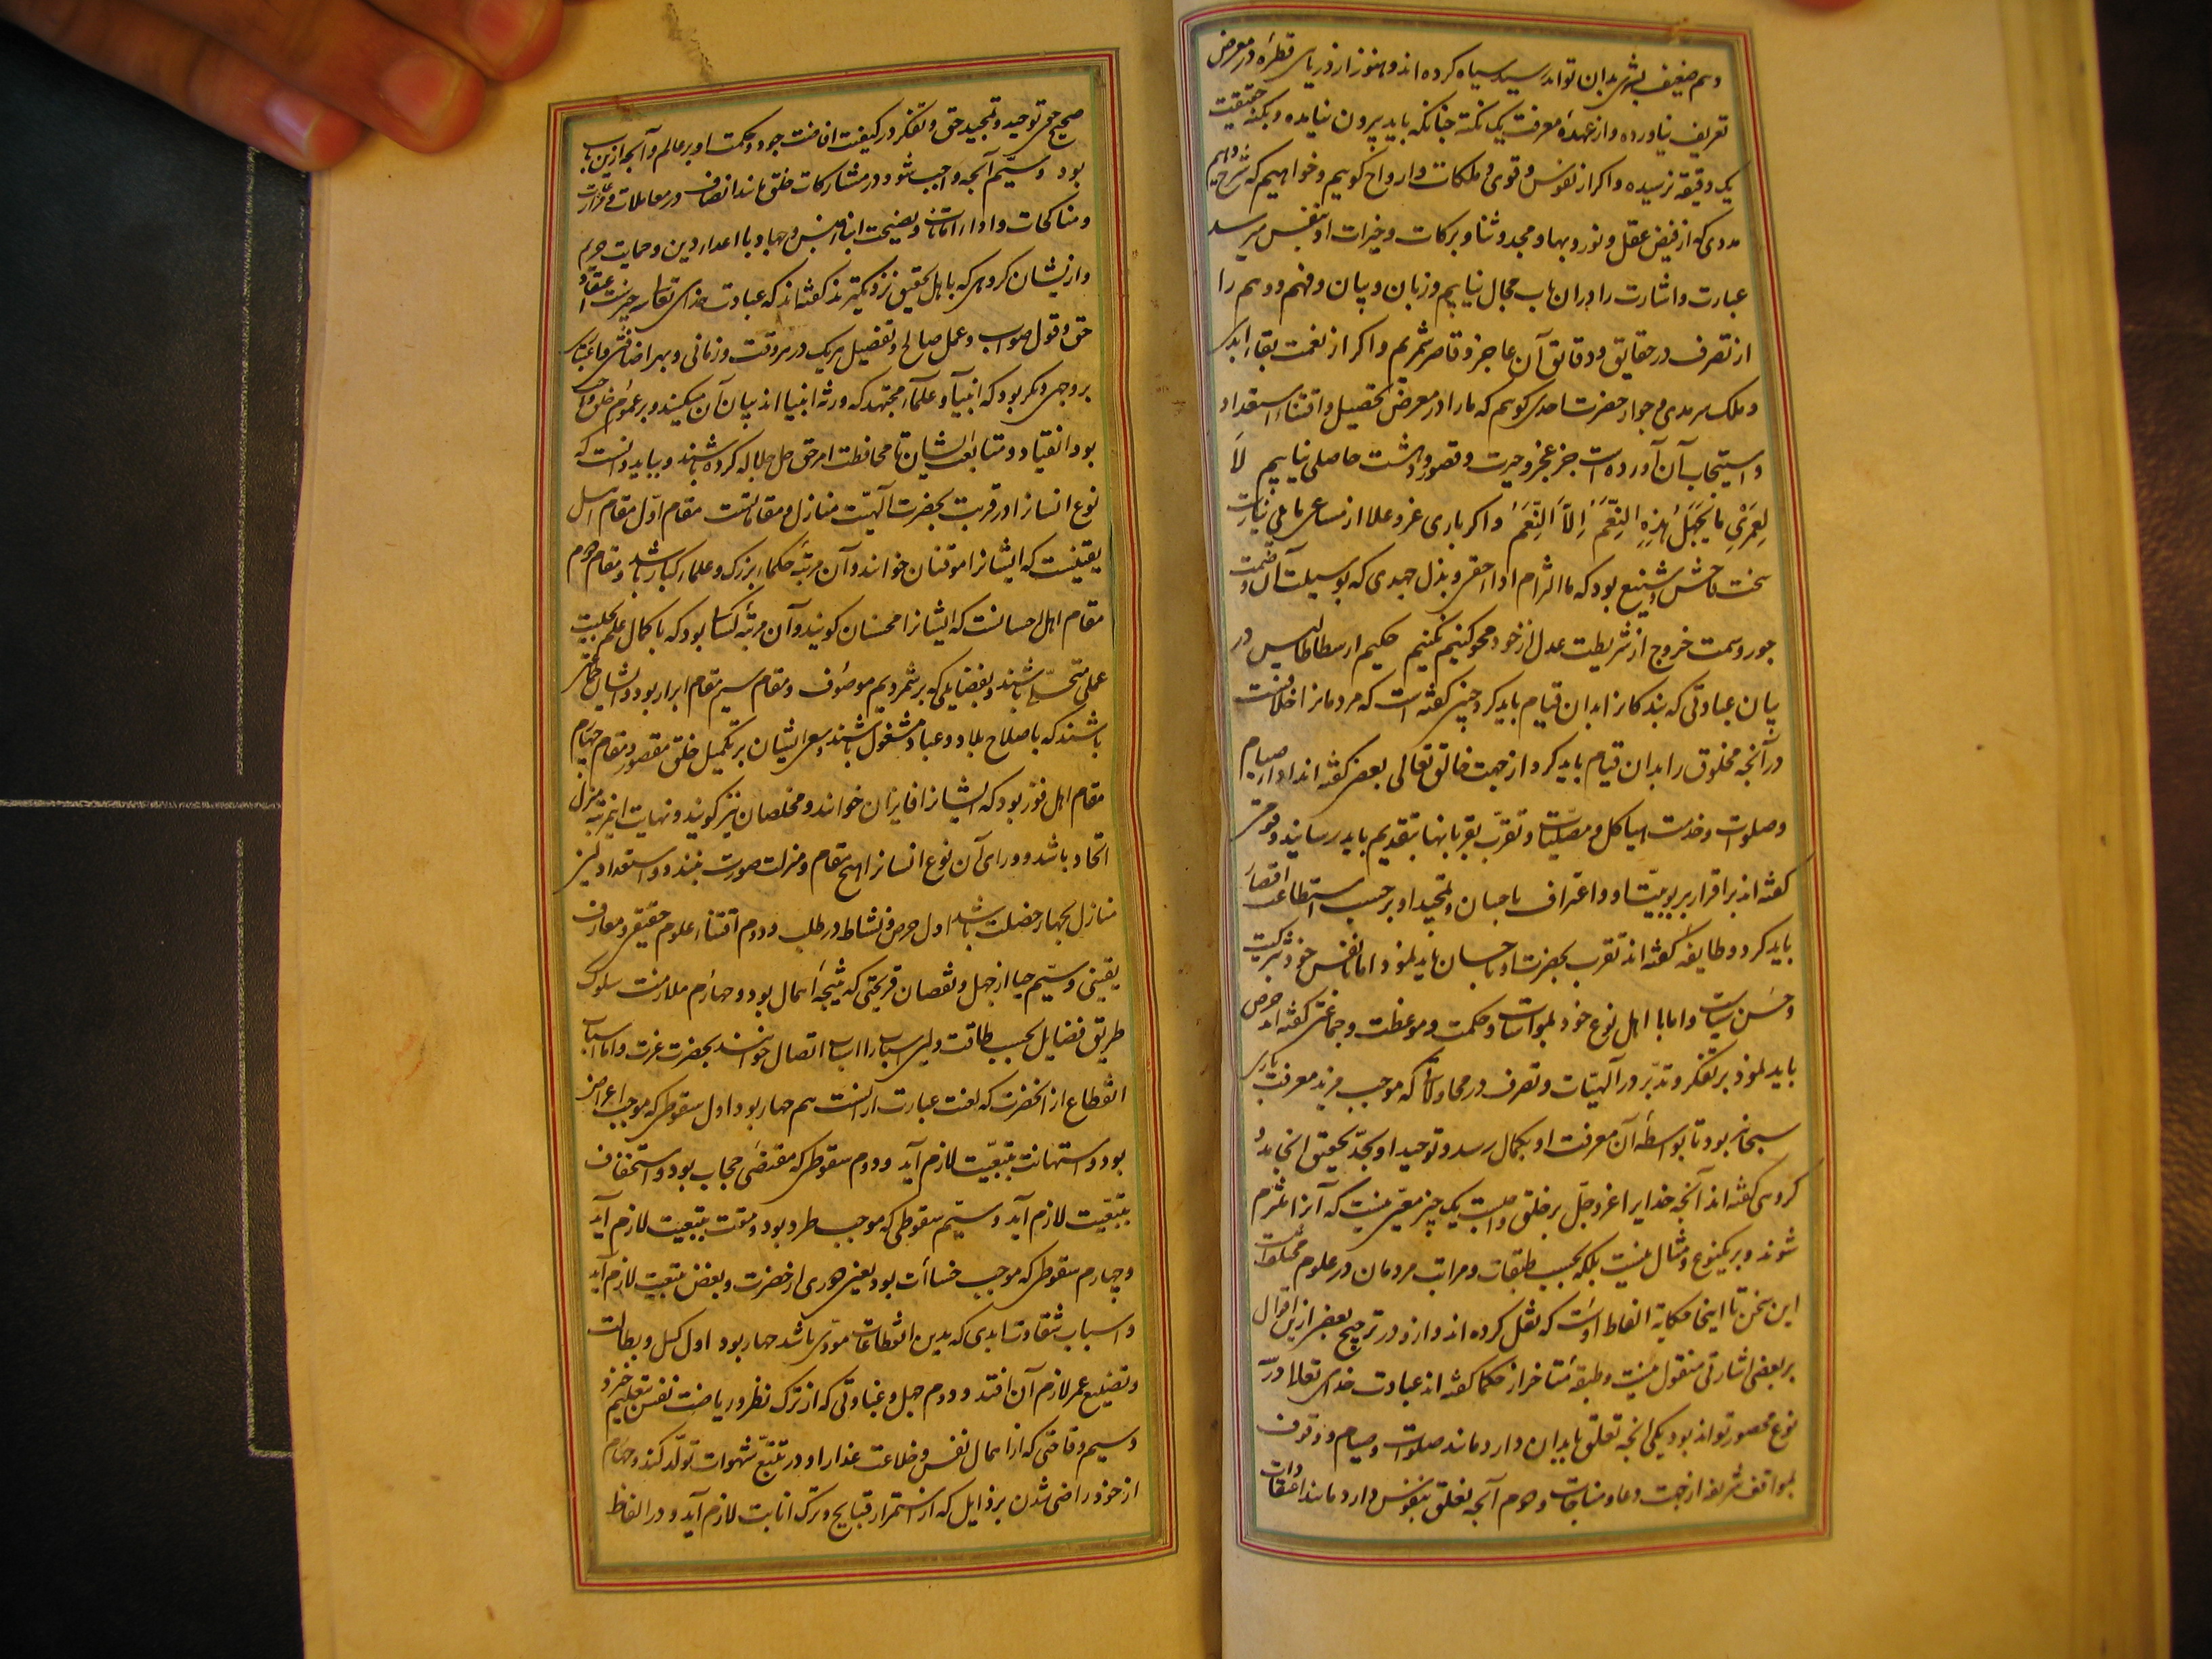 وهم ضعیف بشری بدان تواند رسید سیاه کرده اند و هنوز از دریای قطره در معرض
تعریف نیاورده و از عهدهٔ معرفت یک نکته چنانکه باید بیرون نیامده و بکنه حقیقت
یک دقیقه نرسیده و اکر از نفوس و قوی و ملکات و ارواح کوییم و خواهیم که شرح دهیم
مددی که از فیض عقل و نور و بها و مجد و ثنا و برکات و خیرات او بنفس میرسد
عبارت و اشارت را دران باب مجال نیابیم و زبان و بیان و فهم و وهم را
از تصرف در حقایق و دقایق آن عاجز و قاصر شمریم و اکر از نعمت بقاء ابدی
و ملک سرمدی و جوار حضرت احدی کوییم که ما را در معرض تحصیل و اقتناء استعداد
و استیجاب آن آورده است جز عجز و حیرت و قصور و دهشت حاصلی نیابیم لا
لعمری ما یجهل هذه النعم الا النعم و اکر باری عز و علا از مساعی ما بی نیازست
سخت فاحش و شنیع بود که ما التزام اداء حقی و بذل جهدی که بوسیلت آن وصمت
جور و سمت خروج از شریطت عدل از خود محو کنیم نکنیم حکیم ارسطاطالیس در
بیان عبادتی که بندکانرا بدان قیام باید کرد چنین کفته است که مردمانرا خلافست
در آنچه مخلوق را بدان قیام باید کرد از جهت خالق تعالی بعضی کفته اند اداء صیام
و صلوات و خدمت هیاکل و مصلیات و تقرب بقربانها بتقدیم باید رسانید و قومی
کفته اند بر اقرار بربوبیت او و اعتراف باحسان و تمجید او بر حسب استطاعت اقتصار
باید کرد و طایفه کفته اند تقرب بحضرت او باحسان باید نمود اما با نفس خود بتزکیت
و حسن سیاست و اما با اهل نوع خود بمواسات و حکمت و موعظت و جماعتی کفته اند حرص
باید نمود بر تفکر و تدبر در الهیات و تصرف در محاولاتی که موجب مزید معرفت باری
سبحانه بود تا بواسطهٔ آن معرفت او بکمال رسد و توحید او بحد تحقیق انجامد و
کروهی کفته اند آنچه خدایرا عز و جل بر خلق واجبست یک چیز معین نیست که آنرا ملتزم
شوند و بر یکنوع و مثال نیست بلکه بحسب طبقات و مراتب مردمان در علوم مختلفست
این سخن تا اینجا حکایة الفاظ اوست که نقل کرده اند و ازو در ترجیح بعضی ازین اقوال
بر بعضی اشارتی منقول نیست و طبقهٔ متاخر از حکما کفته اند عبادت خدای تعالا در سه
نوع محصور تواند بود یکی آنچه تعلق بابدان دارد مانند صلوات و صیام و وقوف
بمواقف شریفه از جهت دعا و مناجات و دوم آنچه تعلق بنفوس دارد مانند اعتقادات
صحیح چون توحید و تمجید حق و تفکر در کیفیت افاضت جود و حکمت او بر عالم و آنچه ازین باب
بود و سیم آنچه واجب شود در مشارکات خلق مانند انصاف در معاملات و مزارعات
و مناکحات و اداء امانات و نصیحت ابناء جنس و جهاد با اعداء دین و حمایت حریم
و ازیشان کروهی که باهل تحقیق نزدیکترند کفته اند که عبادت خدای تعالی سه چیزست اعتقاد
حق و قول صواب و عمل صالح و تفصیل هر یک در هر وقت و زمانی و بهر اضافتی و اعتباری
بر وجهی دیکر بود که انبیا و علماء مجتهد که ورثهٔ انبیا اند بیان آن میکنند و بر عموم خلق واجب
بود انقیاد و متابعت ایشان تا محافظت امر حق جل جلاله کرده باشند و بباید دانست که
نوع انسانرا در قربت بحضرت الهیت منازل و مقاماتست مقام اول مقام اهل
یقینست که ایشانرا موقنان خوانند و آن مرتبهٔ حکماء بزرک و علماء کبار باشد و مقام دوم
مقام اهل احسانست که ایشانرا محسنان کویند و آن مرتبهٔ کسانی بود که با کمال علم بحلیت
عملی متحلی باشند و بفضایلی که برشمردیم موصوف و مقام سیم مقام ابرار بود و ایشان جماعتی
باشند که باصلاح بلاد و عباد مشغول باشند و سعی ایشان بر تکمیل خلق مقصور و مقام چهارم
مقام اهل فوز بود که ایشانرا فایزان خوانند و مخلصان نیز کویند و نهایت این مرتبه منزل
اتحاد باشد و ورای آن نوع انسانرا هیچ مقام و منزلت صورت نبندد و استعداد این
منازل بچهار خصلت باشد اول حرص و نشاط در طلب و دوم اقتناء علوم حقیقی و معارف
یقینی و سیم حیا از جهل و نقصان قریحتی که نتیجهٔ اهمال بود و چهارم ملازمت سلوک
طریق فضایل بحسب طاقت و این اسباب را اسباب اتصال خوانند بحضرت عزت و اما اسباب
انقطاع از آنحضرت که لعنت عبارت از آنست هم چهار بود اول سقوطی که موجب اعراض
بود و استهانت بتبعیت لازم آید و دوم سقوطی که مقتضی حجاب بود و استخفاف
بتبعیت لازم آید و سیم سقوطی که موجب طرد بود و مقت بتبعیت لازم آید
و چهارم سقوطی که موجب خسأت بود یعنی دوری از حضرت و بغض بتبعیت لازم آید
و اسباب شقاوت ابدی که بدین انقطاعات مودی باشد چهار بود اول کسل و بطالت
و تضییع عمر لازم آن افتد و دوم جهل و غباوتی که از ترک نظر و ریاضت نفس بتعلیم خیزد و
سیم وقاحتی که از اهمال نفس و خلاعت عذار او در تتبع شهوات تولد کند و چهارم
از خود راضی شدن برذایل که از استمرار قبایح و ترک انابت لازم آید و در الفاظ